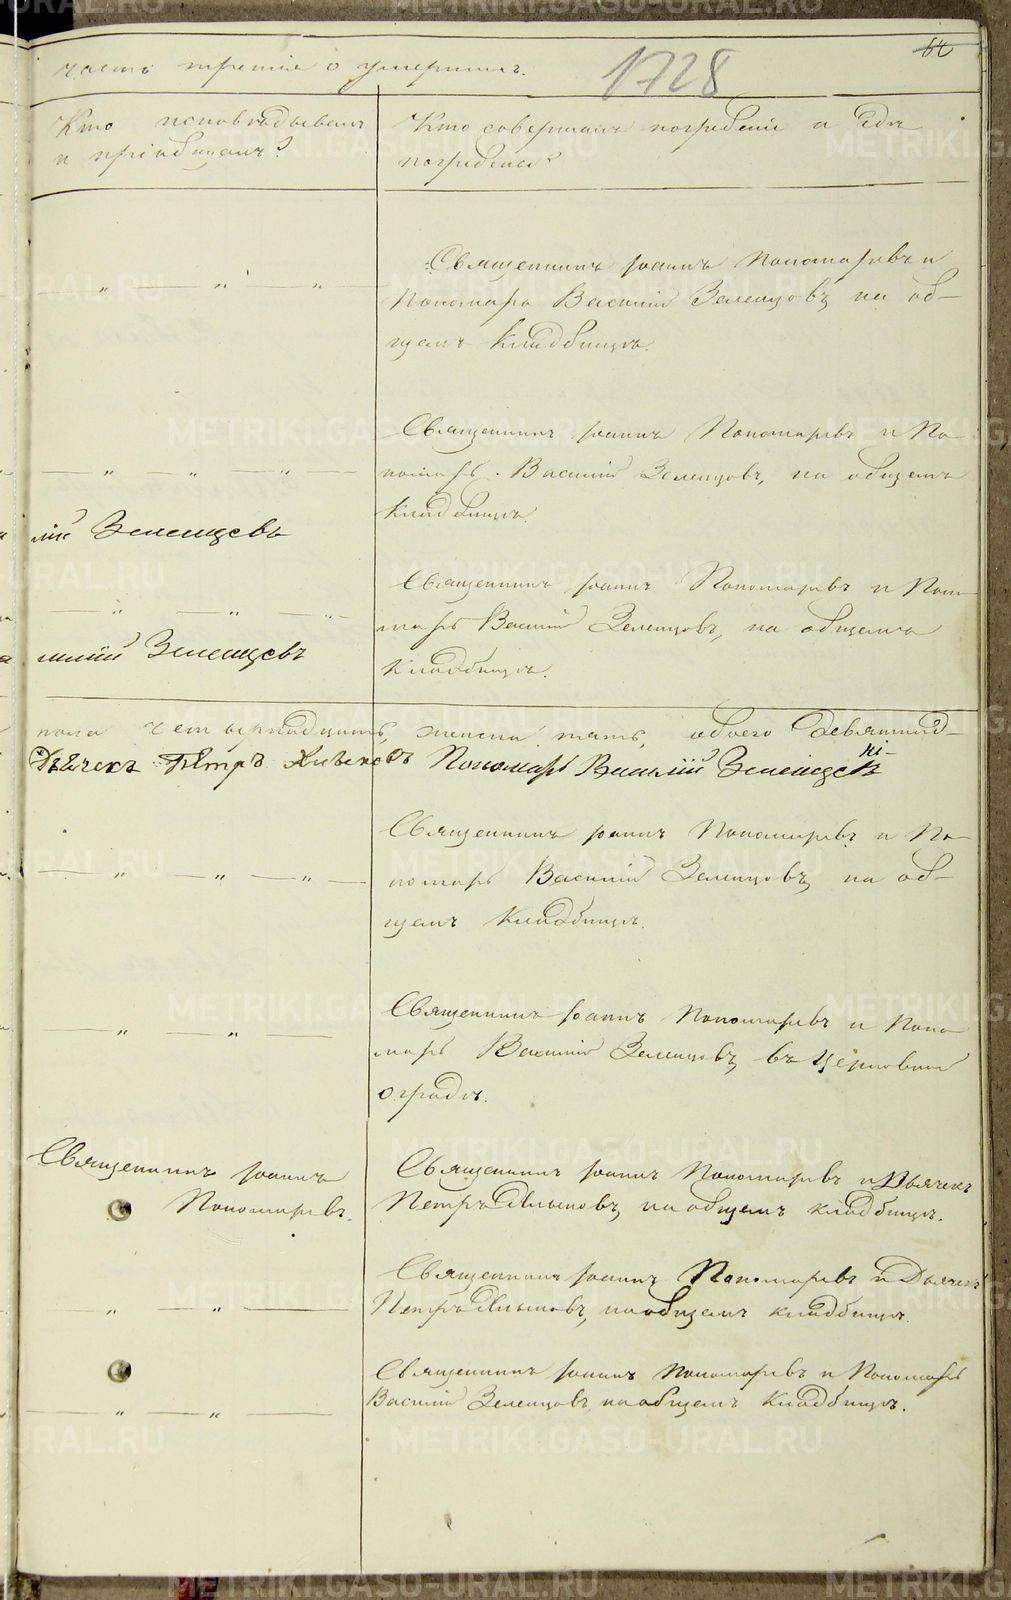 часть третія о умершихъ.
1728
64
Кто исповѣдывалъ
и пріобщалъ?
Кто совершалъ погребеніе и гдѣ
погребены?
Священникъ Іоаннъ Пономаревъ и
Пономарь Василій Зеленцовъ на об-
щемъ кладбищѣ.
Священникъ Іоаннъ Пономаревъ и По-
номарь Василій Зеленцовъ, на общемъ
кладбищѣ.
лій Зеленцевъ
Священникъ Іоаннъ Пономаревъ и Поно-
марь Василій Зеленцовъ, на общемъ
кладбищѣ.
силій Зеленцевъ
пола четырнадцать, женска пять, обоего девятнад-
Дьячекъ Петръ Пономарь Василій Зеленцев
Священникъ Іоаннъ Пономаревъ и По-
номарь Василій Зеленцовъ на об-
щемъ кладбищѣ.
Священникъ Іоаннъ Пономаревъ и Поно-
марь Василій Зеленцовъ въ церковной
оградѣ.
Священникъ Іоаннъ
Пономаревъ.
Священникъ Іоаннъ Пономаревъ и Дьячекъ
Петръ на общемъ кладбищѣ.
Священникъ Іоаннъ Пономаревъ и Дьячекъ
Петръ на общемъ кладбищѣ.
Священникъ Іоаннъ Пономаревъ и Пономарь
Василій Зеленцовъ на общемъ кладбищѣ.
METRIKI.GASO-URAL.RU